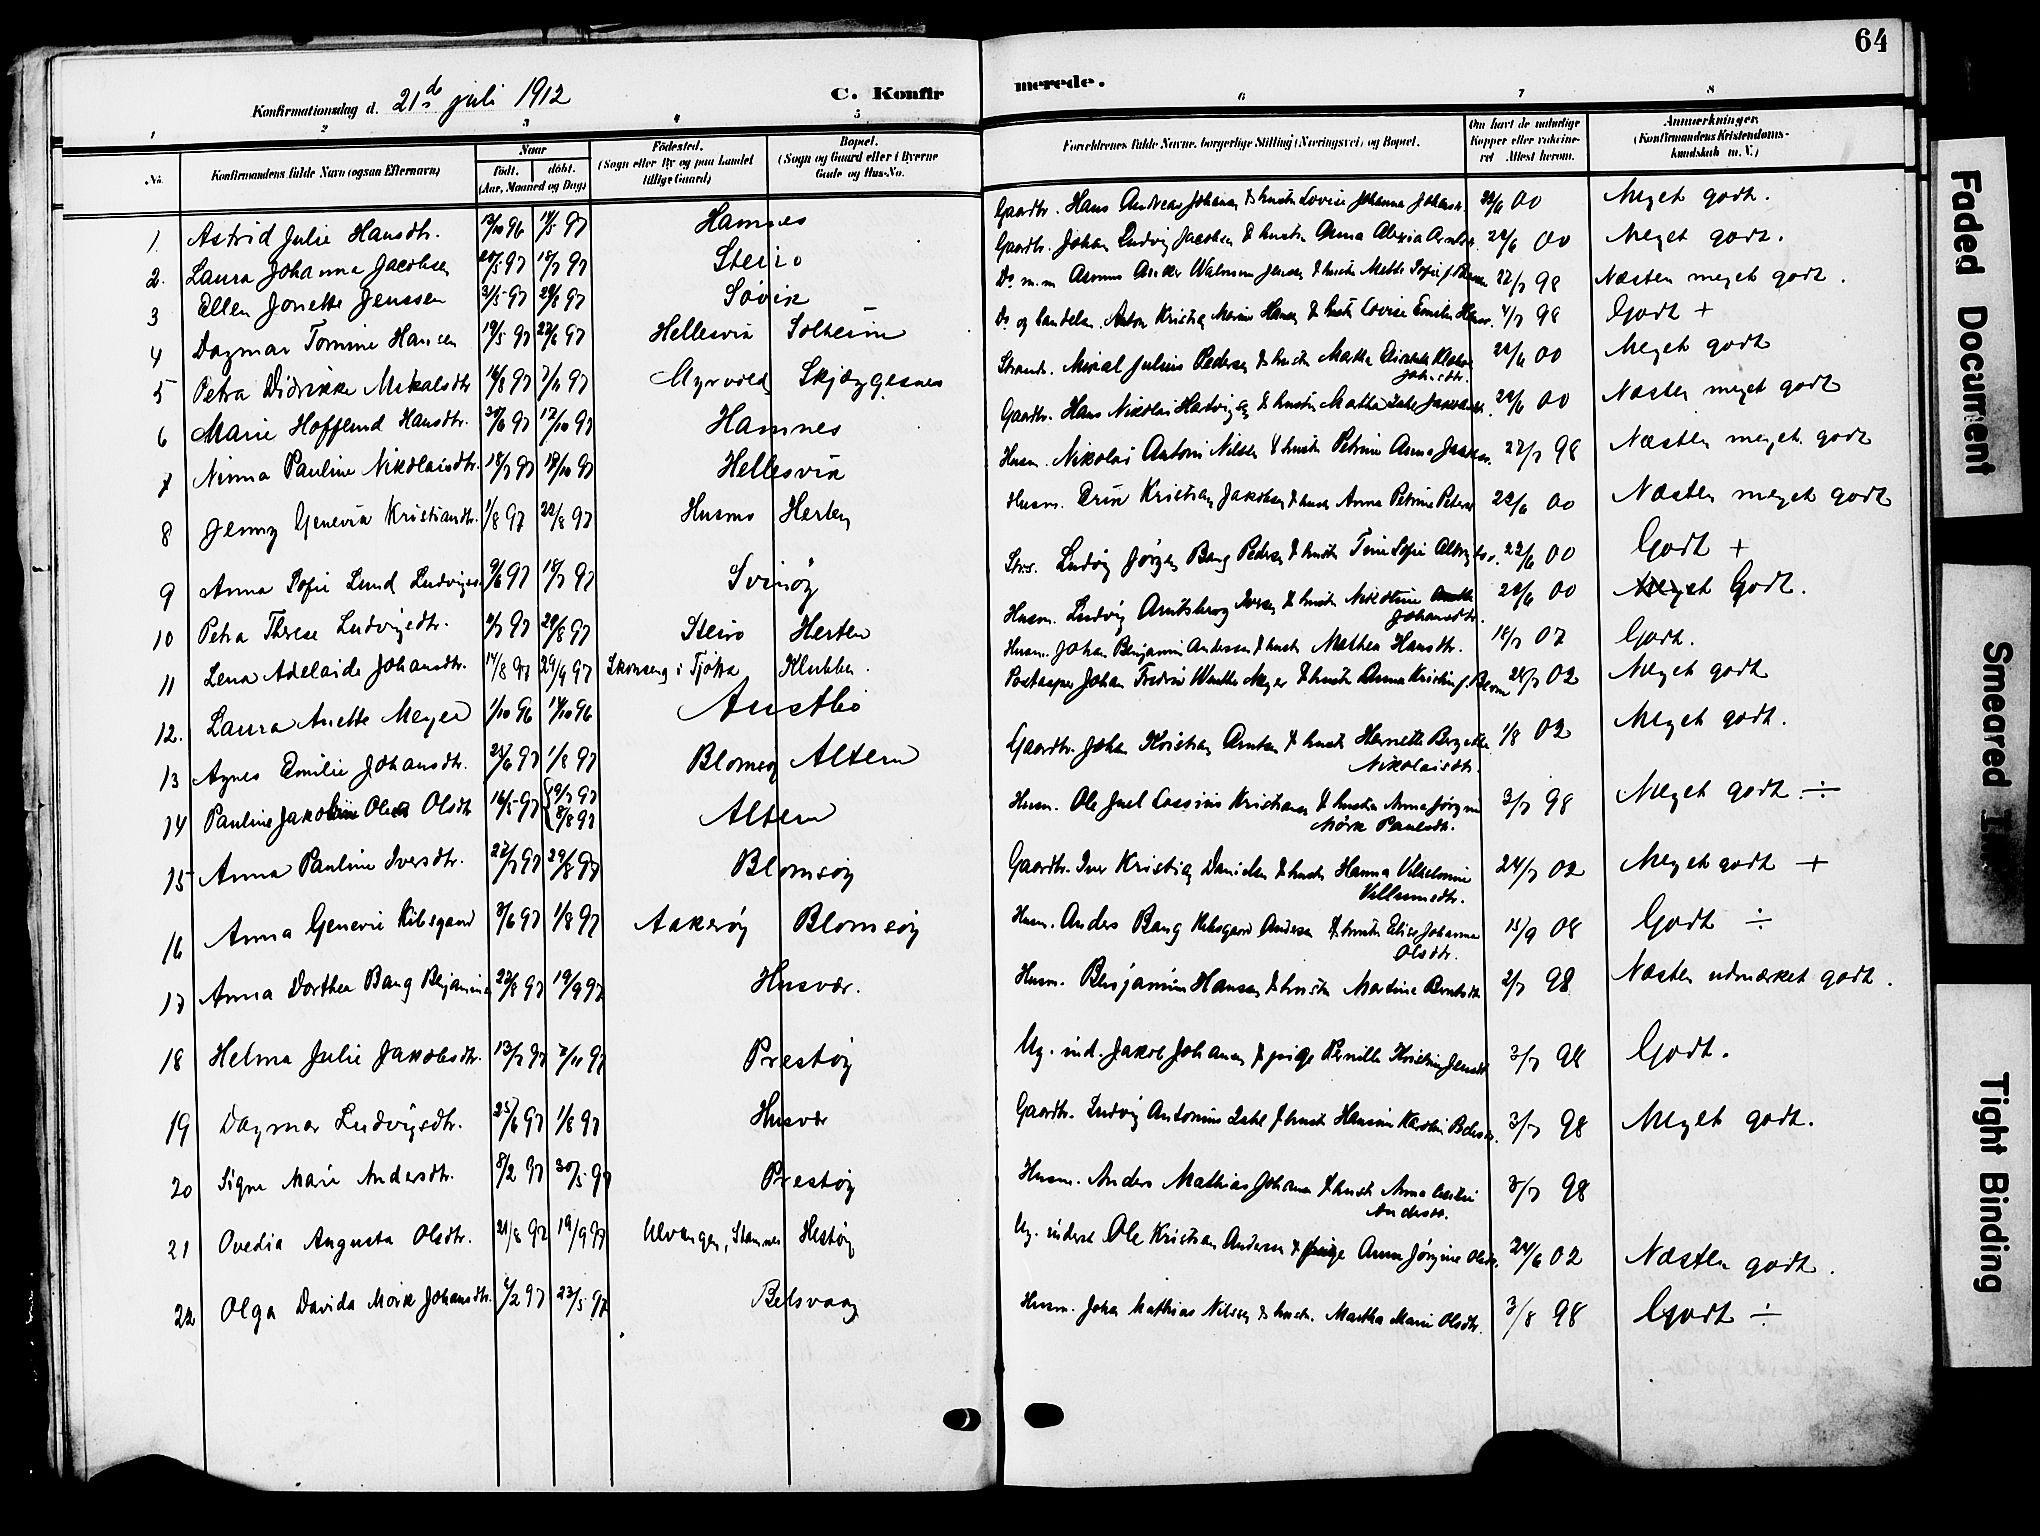 64
Konfirmationsdag d. 21de juli 1912 C. Konfirmerede.
1 2 3 4 5 6 7 8
No. Konfirmandens fulde Navn (ogsaa Efternavn) Naar født. døbt. (Aar, Maaned og Dag) Fødested. (Sogn eller By og paa Landet tillige Gaard) Bopæl. (Sogn og Gaard eller i Byerne Gade og Hus-No. Forældrenes fulde Navne, borgerlige Stilling (Næringsvei) og Bopæl. Om havt de naturlige Kopper eller vaksineret Attest herom. Anmærkninger. (Konfirmandens Kristendomskundskab m. V.)
1. Astrid Julie Hansdtr. 13/10 96 17/5 97 Hamnes Gaardbr. Hans Andreas Johansen & hustr. Lovise Johanna Johans. 22/6 00 Meget godt.
2. Laura Johanna Jacobsen 18/7 97 Steiro Gaardbr. Johan Ludvig Jacobsen & hustr. Anna Alexia 22/6 00 Meget godt.
3 Ellen Jonette Jenssen 31/5 97 Søvik Do. m.m Jensen & hustr. Mette Sofie 22/7 98 Næsten meget godt.
4 Dagmar Tomine Hansen 19/5 97 27/6 97 Hellesvik Solheim Do og handelsm. Anton Kristian Hansen & hustr. Lovise 4/7 98 Godt +
5 Petra Didrikke Mikalsdtr 16/8 97 7/11 97 Myrvold Skjeggesnes Strands. Mikal Julius Pedersen & hustr. Martha Elisabeth Johnsdtr. 22/6 00 Meget godt
6 Marie Hofflund Hansdtr. 17/10 97 Hamnes Gaardbr. Hans Nikolai & hustr. Martha 22/6 00 Næsten meget godt
7 Ninna Pauline Nikolaisdtr. 18/7 97 Hellesvik Husm. Nikolai Antoni Nilsen & hustr. Petrine Anna 22/7 98 Næsten meget godt
8 Jenny Genevia Kristiandtr. 1/8 97 22/8 97 Husmo Herten Husm. Kristian Jakobsen & hustr. Anna Petrine 22/6 00 Næsten meget godt
9 Anna Sofie Lund Ludvigs. 9/6 97 18/7 97 Svinøy Ludvig Jørgen Bang Pedersen & hustr. Tine Sofie 22/6 00 Godt +
10 Petra Therese Ludvigsdtr. 29/8 97 Steiro Herten Husm. Ludvig Arntsberg Iversen & hustr. Nikoline Johansdtr. 22/6 00 Meget Godt.
11 Lena Adelaide Johansdtr. 14/8 97 29/9 97 Skonseng i Tjøtta Klubben. Husm. Johan Benjamin Andersen & hustr. Mathea Hansdtr. 18/7 07 Godt.
12. Laura Anette Meyer 1/10 96 Austbø Johan Fredrik Meyer & hustr. Anna Kristine 02 Meget godt
13 Agnes Emilie Johansdtr. 25/6 97 1/8 97 Blomsøy Altern Gaardbr. Johan Kristian Arntsen & hustr. Bergette Nikolaisdtr. 1/8 02 Meget godt.
14 Pauline Jakobine Olea Olsdt 16/5 97 {9/7 97 8/8 97 Altern Husm. Ole Juel Cassius Kristiansen & hustr. Anna Jørgine Mørk Paulsdtr. 3/7 98 Meget godt. ÷
15 Anna Pauline Iversdtr. 22/7 97 29/8 97 Blomsøy Gaardbr. Iver Kristian Danielsen & hustr. Hanna Vilhelmine Villumsdtr. 24/7 02 Meget godt +
16 Anna Genevie Kilsgaard 3/6 97 1/8 97 Aakerøy Blomsøy Husm. Anders Bang Andersen & hustr. Elise Johanna Olsdtr. 15/9 08 Godt ÷
17 Anna Dorthea Bang Benjamins 22/8 97 19/9 97 Husvær. Husm. Benjamin Hansen & hustr. Martine 2/7 98 Næsten udmærket godt.
18 Helma Julie Jakobsdtr. 13/7 97 7/11 97 Prestøy Ug. ind. Jakob Johansen & pige Pernille Kristine 3/7 98 Godt.
19 Dagmar Ludvigsdtr. 25/6 97 1/8 97 Husvær Gaardbr. Ludvig Antonius & hustr. Hansine Karoline 3/7 98 Meget godt.
20 Signe Marie Andersdtr. 8/2 97 30/5 97 Prestøy Husm. Anders Mathias Johansen & hustr. Anna Andersd. 3/7 98
21 Ovedia Augusta Olsdtr. 21/8 97 19/9 97 Ulvangen, Stamnes Hestøy Ug. inderst Ole Kristian Andersen & pige Anna Jørgine Olsdtr. 24/6 02 Næsten godt.
22 Olga Davida Mørk Johansdtr. 4/2 97 23/5 97 Belsvaag Husm. Johan Mathias Nilsen & hustr. Martha Marie Olsdtr. 3/8 98 Godt ÷
Faded Document
Smeared Ink
Tight Binding